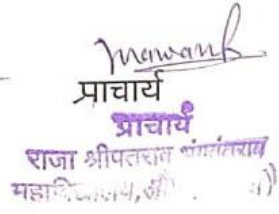 प्राचार्य
प्राचार्य
राजा श्रीपतराव भगवंतराव
महाविद्यालय,